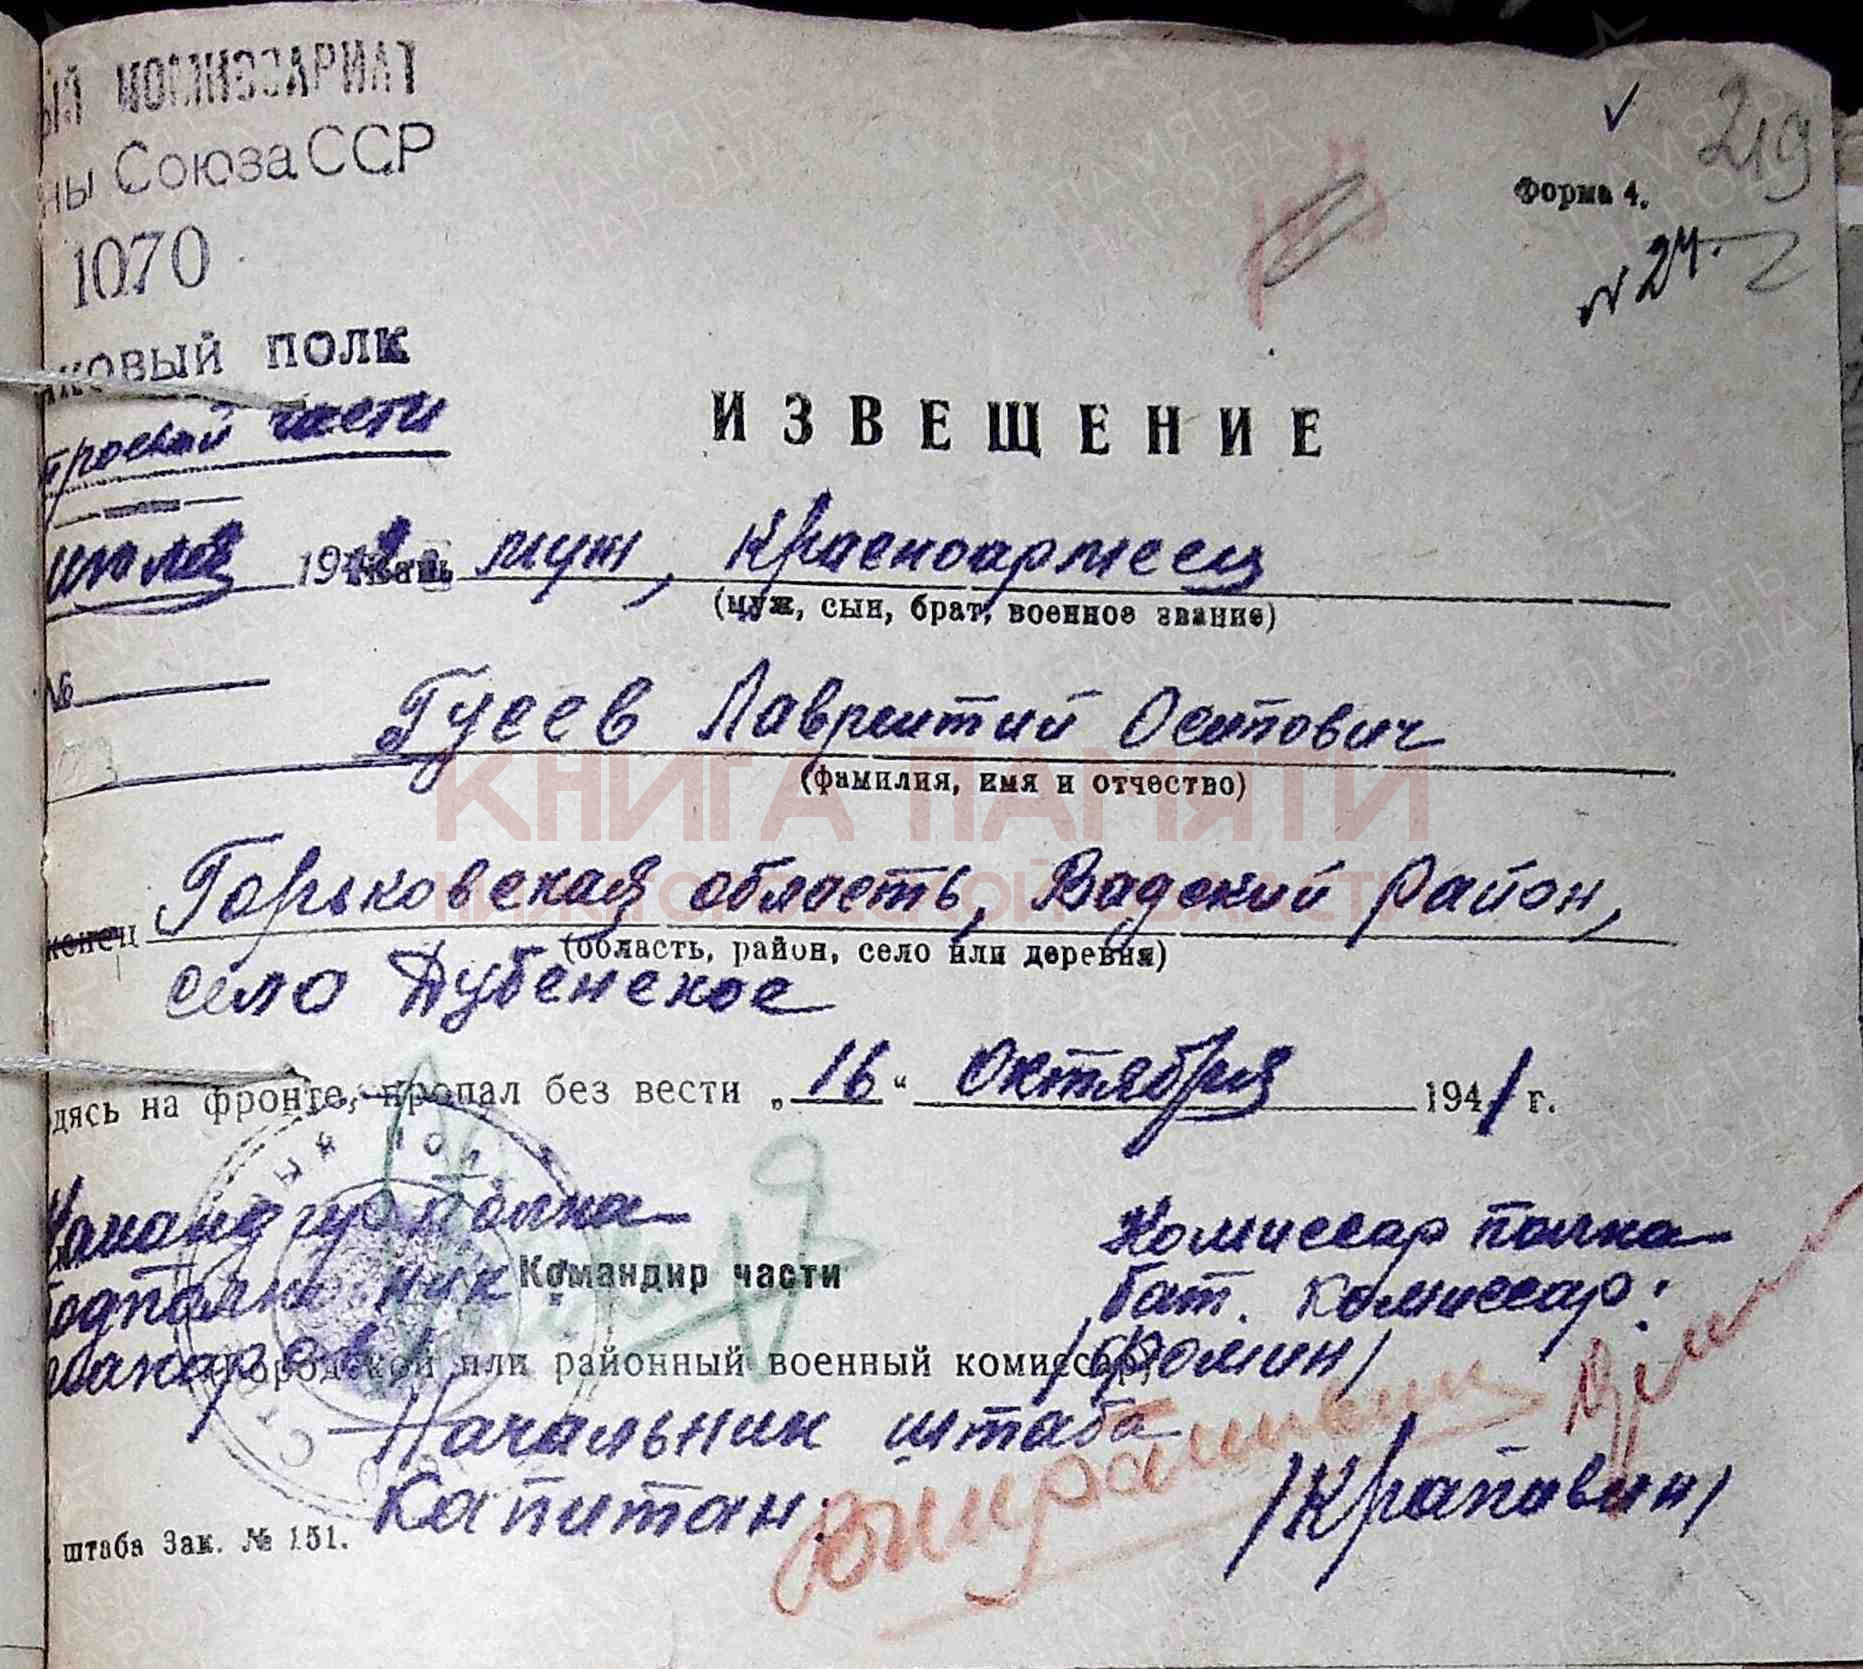 КОМИССАРИАТ
ны Союза ССР
1070
ковый полк
строевой части
июля 1942
№
219
Форма 4.
№ 24.
ИЗВЕЩЕНИЕ
муж, Красноармеец
(муж, сын, брат, военное звание)
Гусев Лаврентий Осипович
(фамилия, имя и отчество)
Горьковская область, Вадский Район,
(область, район, село или деревня)
село Дубенское
дясь на фронте, пропал без вести „16“ Октября 1941 г.
Командир полка
Комиссар полка
Подполковник
Командир части
бат. комиссар:
/Фомин/
Городской или районный военный комиссар
Начальник штаба
Капитан:
/Крапивин/
штаба Зак. № 151.
КНИГА ПАМЯТИ
НИЖЕГОРОДСКОЙ ОБЛАСТИ
ПАМЯТЬ НАРОДА